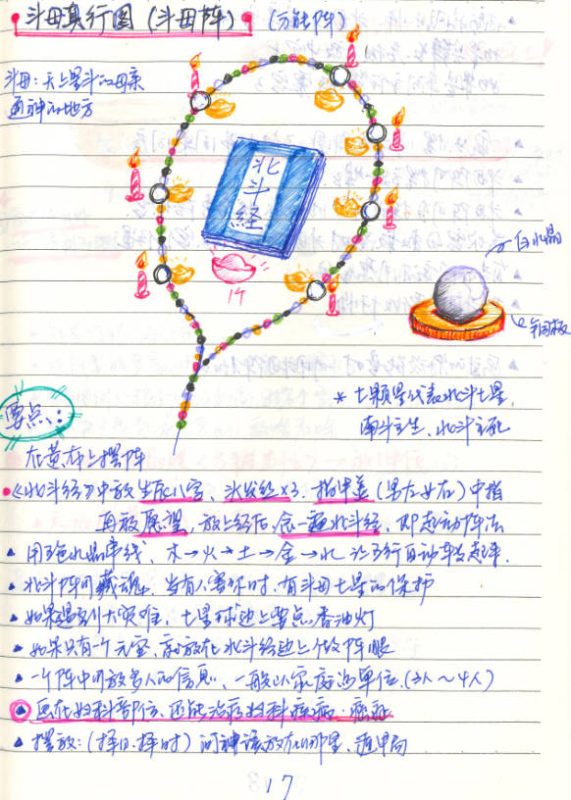 斗母真行图（斗母阵）（万能阵）
斗母：天上星斗的母亲
通神的地方
北斗经
14
白水晶
* 七颗星代表北斗七星，
南斗主生、北斗主死
要点：
在黄布上摆阵
《北斗经》中放生辰八字、头发丝×3、指甲盖（男左女右）中指
再放愿望，放上经后，念一遍北斗经，即起动阵法
▲ 用5色水晶串线，木→火→土→金→水 让5行自动转起来.
▲ 北斗阵可藏魂，当有人害你时，有斗母七星的保护
▲ 如果遇到大灾难、七星球边上要点香油灯
▲ 如果只有一个元宝，就放在北斗经边上做阵眼
▲ 一个阵中可放多人的信息，一般以家庭为单位.(3人～4人)
画在妇科部位、还能治疗妇科疾病、癌症
▲ 摆放：(择日.择时) 问神该放在哪里，遁甲局
17